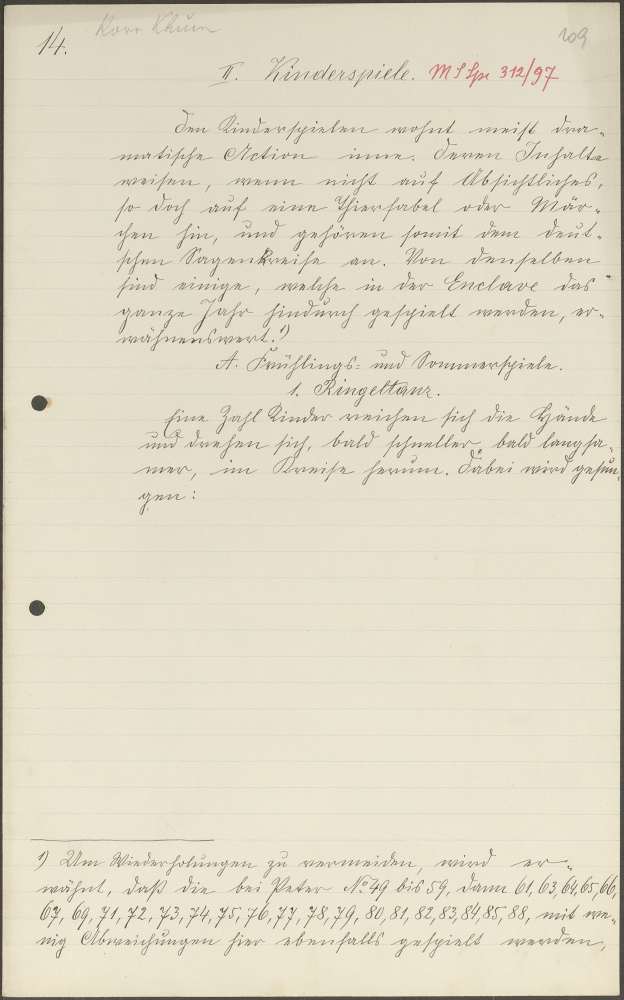 14.
109
II. Kinderspiele. MS Spr 312/97
Den Kinderspielen wohnt meist dra-
matische Action inne. Deren Inhalte
weisen, wenn nicht auf Absichtliches,
so doch auf eine Thierfabel oder Mär-
chen hin, und gehören somit dem deut-
schen Sagenkreise an. Von denselben
sind einige, welche in der Enclave das
ganze Jahr hindurch gespielt werden, er-
wähnenswert.¹)
A. Frühlings- und Sommerspiele.
1. Ringeltanz.
Eine Zahl Kinder reichen sich die Hände
und drehen sich, bald schneller, bald langsa-
mer, im Kreise herum. Dabei wird gesun-
gen:
¹) Um Wiederholungen zu vermeiden, wird er-
wähnt, daß die bei Peter No 49 bis 59, dann 61, 63, 64, 65, 66,
67, 69, 71, 72, 73, 74, 75, 76, 77, 78, 79, 80, 81, 82, 83, 84, 85, 88, mit we-
nig Abweichungen hier ebenfalls gespielt werden,